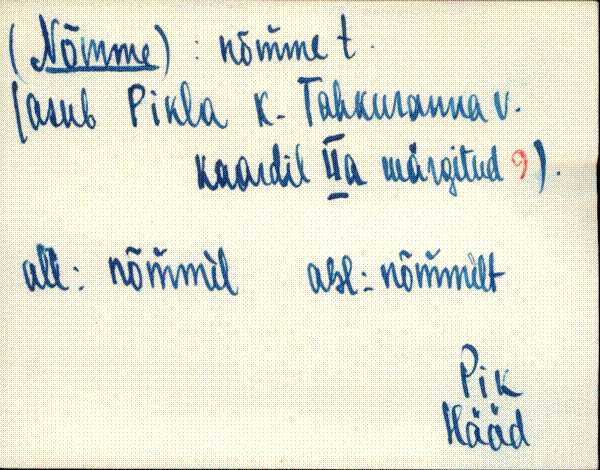 (Nõmme) : nõm̆me t.
(asub Pikla k. Tahkuranna v.
kaardil IIa märgitud 9).
all: nõm̆mel abl: nõm̆melt
Pik
Hääd